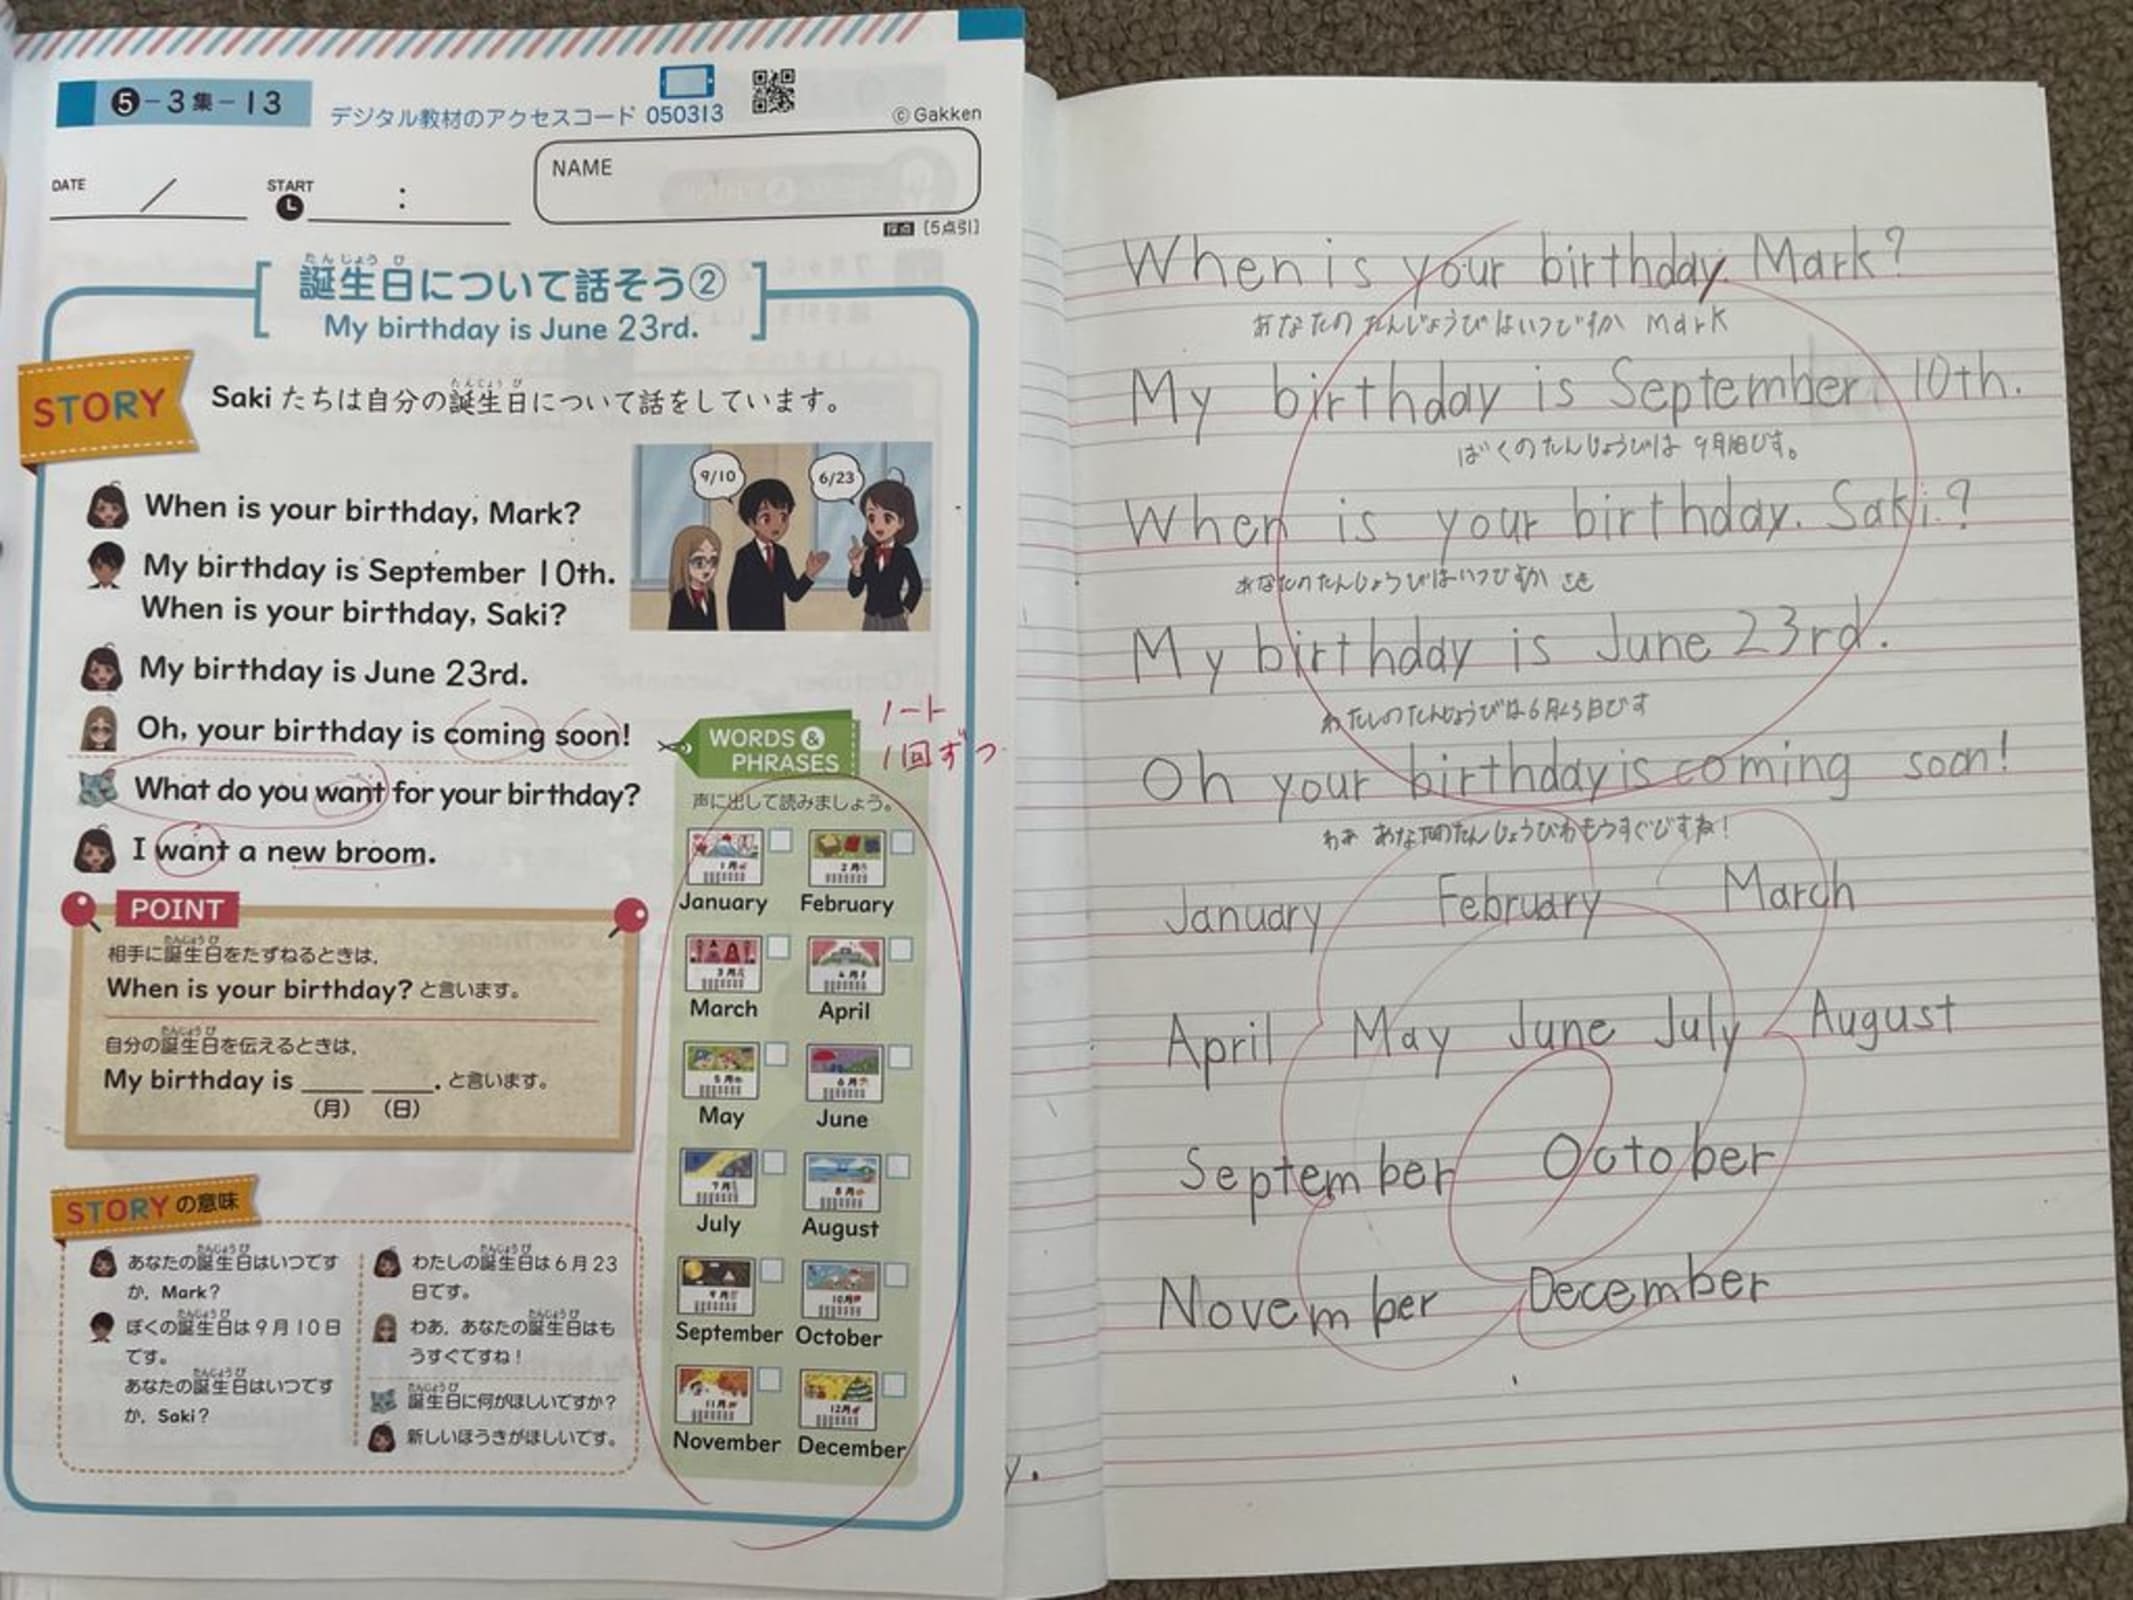 5-3集-13
デジタル教材のアクセスコード 050313
©Gakken
DATE /
START :
NAME
採点 [5点引]
誕生日について話そう②
My birthday is June 23rd.
STORY
Sakiたちは自分の誕生日について話をしています。
9/10
6/23
When is your birthday, Mark?
My birthday is September 10th.
When is your birthday, Saki?
My birthday is June 23rd.
Oh, your birthday is coming soon!
What do you want for your birthday?
I want a new broom.
ノート
1回ずつ
WORDS &
PHRASES
声に出して読みましょう。
1月
2月
January February
3月
4月
March April
5月
6月
May June
7月
8月
July August
9月
10月
September October
11月
12月
November December
POINT
相手に誕生日をたずねるときは,
When is your birthday? と言います。
自分の誕生日を伝えるときは,
My birthday is ____ ____. と言います。
(月) (日)
STORYの意味
あなたの誕生日はいつです
か, Mark?
ぼくの誕生日は9月10日
です。
あなたの誕生日はいつです
か, Saki?
わたしの誕生日は6月23
日です。
わあ, あなたの誕生日はも
うすぐですね!
誕生日に何がほしいですか?
新しいほうきがほしいです。
When is your birthday. Mark?
あなたのたんじょうびはいつですか Mark
My birthday is September 10th.
ぼくのたんじょうびは 9月10日です。
When is your birthday. Saki.?
あなたのたんじょうびはいつですか さき
My birthday is June 23rd.
わたしのたんじょうびは6月23日です
Oh your birthday is coming soon!
わあ あなたのたんじょうびわもうすぐですね!
January February March
April May June July August
September October
November December
y.